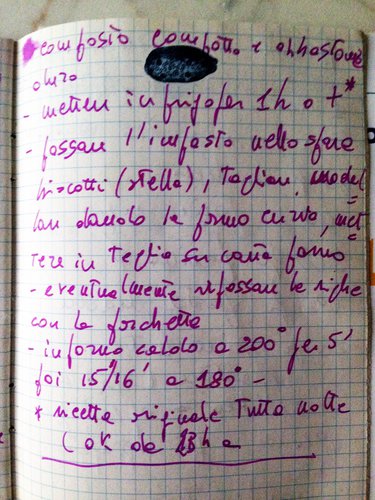 composto compatto e abbastanza
duro
- mettere in frigo per 1h o + *
- passare l'impasto nello spara
biscotti (stella), tagliare, model
lare dando la forma curva, met
tere in teglia su carta forno
- eventualmente ripassare le righe
con la forchetta
- in forno caldo a 200° per 5'
poi 15'/16' a 180° -
* ricetta originale tutta notte
(ok da 2 h a